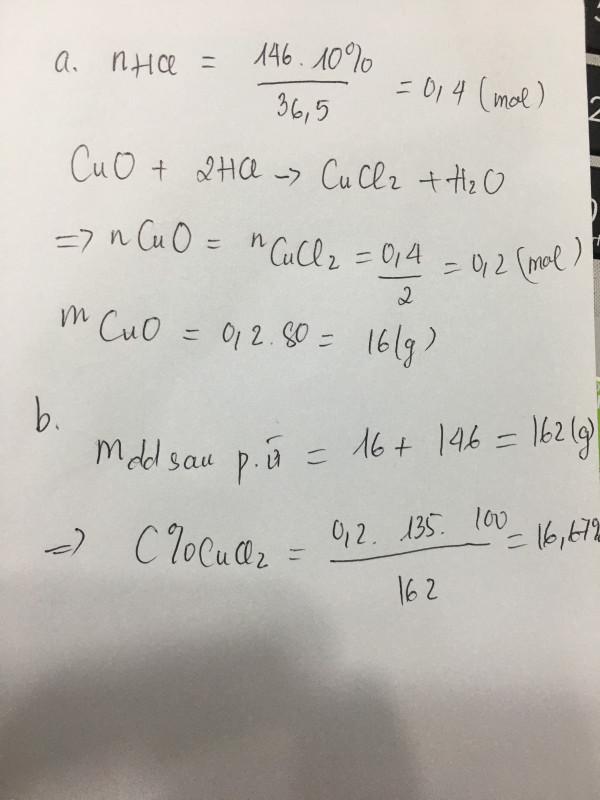 a. nHCl = 146.10% / 36,5 = 0,4 (mol)
CuO + 2HCl -> CuCl2 + H2O
=> nCuO = nCuCl2 = 0,4 / 2 = 0,2 (mol)
mCuO = 0,2.80 = 16(g)
b.
mdd sau p.ứ = 16 + 146 = 162(g)
=> C%CuCl2 = 0,2. 135. 100 / 162 = 16,67%